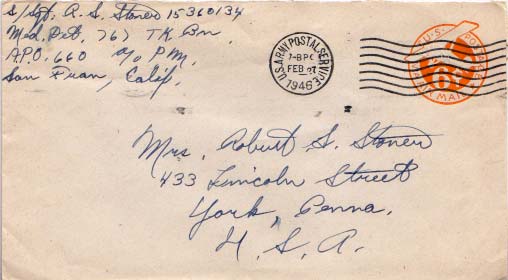 S/Sgt. R. S. Stoner 15360134
Med. Det. 767 TK Bn
A.P.O. 660 % P.M.
San Fran, Calif.
U.S. ARMY POSTAL SERVICE
FEB 27
1946
U.S. POSTAGE
6¢
VIA AIR MAIL
Mrs. Robert S. Stoner
433 Lincoln Street
York, Penna.
U. S. A.